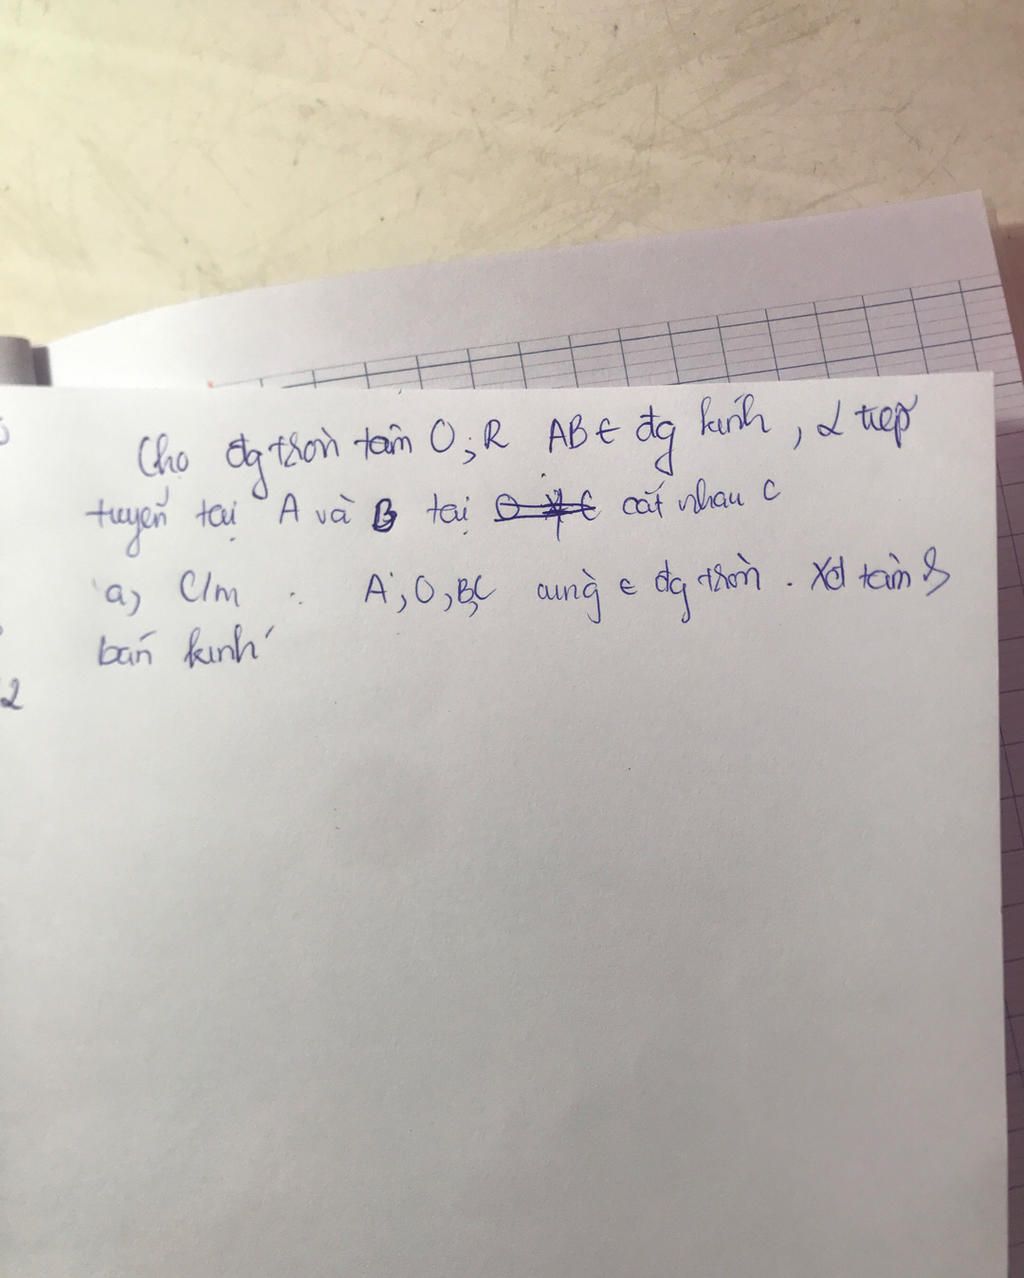 Cho đg tròn tâm O; R AB ∈ đg kính, 2 tiếp
tuyến tại A và B tại cắt nhau C
a, C/m : A; O, B, C cùng ∈ đg tròn. Xđ tâm &
bán kính
2